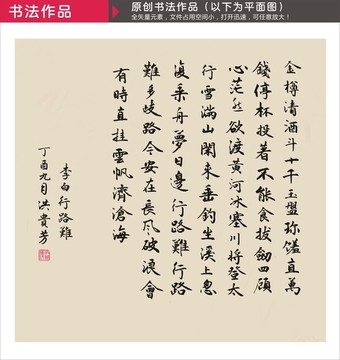 书法作品
原创书法作品（以下为平面图）
全矢量元素，文件占用空间小，打开迅速，可任意放大！
金樽清酒斗十千玉盤珎饈直萬
錢停杯投著不能食拔劍四顧
心茫然欲渡黃河冰塞川將登太
行雪滿山閑來垂釣坐溪上忽
復乘舟夢日邊行路難行路
難多歧路今安在長風破浪會
有時直挂雲帆濟滄海
李白行路難
丁酉九月洪貴芳